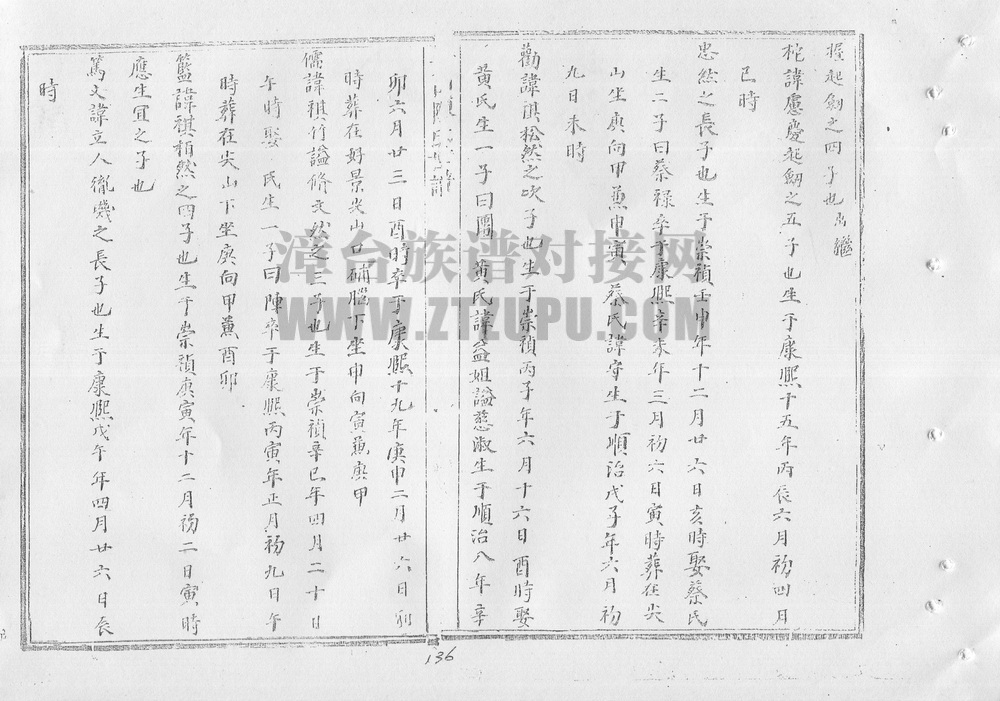 握起劔之四子也出繼
柁諱慮慶起劔之五子也生于康熙十五年丙辰六月初四月
己時
忠然之長子也生于崇禎壬申年十二月廿六日亥時娶蔡氏
生二子曰蔡禄卒于康熙辛未年三月初六日寅時葬在尖
山坐庚向甲兼申寅 蔡氏諱 生于順治戊子年六月初
九日未時
勸諱祺松然之次子也生于崇禎丙子年六月十六日酉時娶
黄氏生一子曰 黄氏諱益姐謚慈淑生于順治八年辛
卯六月廿三日酉時卒于康熙十九年庚申二月廿六日卯
時葬在好景尖山 硼腦下坐申向寅兼庚甲
儒諱祺竹謚脩文然之三子也生于崇禎辛巳年四月二十日
午時娶 氏生一子曰陣卒于康熙丙寅年正月初九日午
時葬在尖山下坐庚向甲兼酉卯
籃諱祺栢然之四子也生于崇禎庚寅年十二月初二日寅時
應生宜之子也
篤文諱立人徹 之長子也生于康熙戊午年四月廿六日辰
時
136
漳台族谱对接网
WWW.ZTZUPU.COM